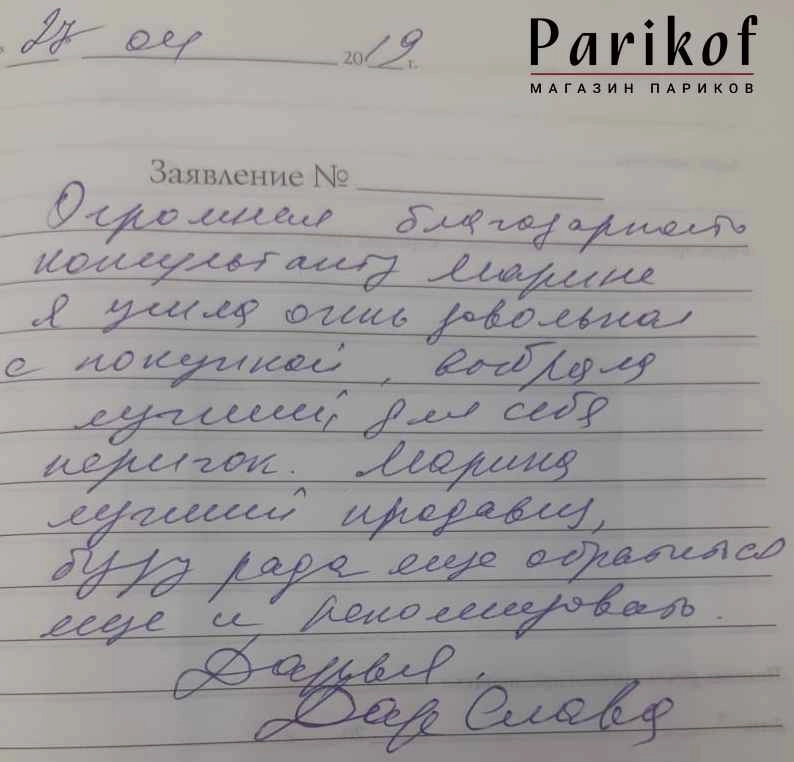 27 04 2019 г.
Parikof
МАГАЗИН ПАРИКОВ
Заявление №
Огромная благодарность
консультанту Марине
я ушла очень довольная
с покупкой, выбрала
лучший для себя
перичок. Марина
лучший продавец,
буду рада еще обратиться
еще и рекомендовать.
Дарья.
Дар Слава